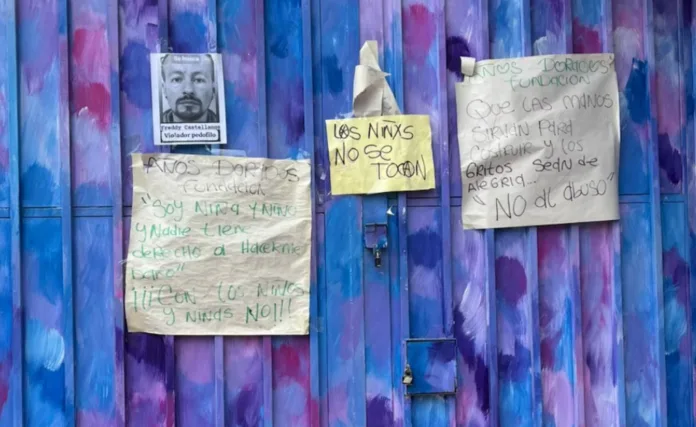 Se Busca
Freddy Castellanos
Violador pedofilo
AÑOS DORADOS
FUNDACIÓN
"SOY NIÑA Y NIÑO
Y NADIE TIENE
DERECHO A HACERME
DAÑO"
¡¡¡CON LOS NIÑOS
Y NIÑAS NO!!!
LOS NIÑXS
NO SE
TOCAN
AÑOS DORADOS
FUNDACIÓN
QUE LAS MANOS
SIRVAN PARA
CONSTRUIR Y LOS
GRITOS SEAN DE
ALEGRIA...
"NO AL ABUSO"